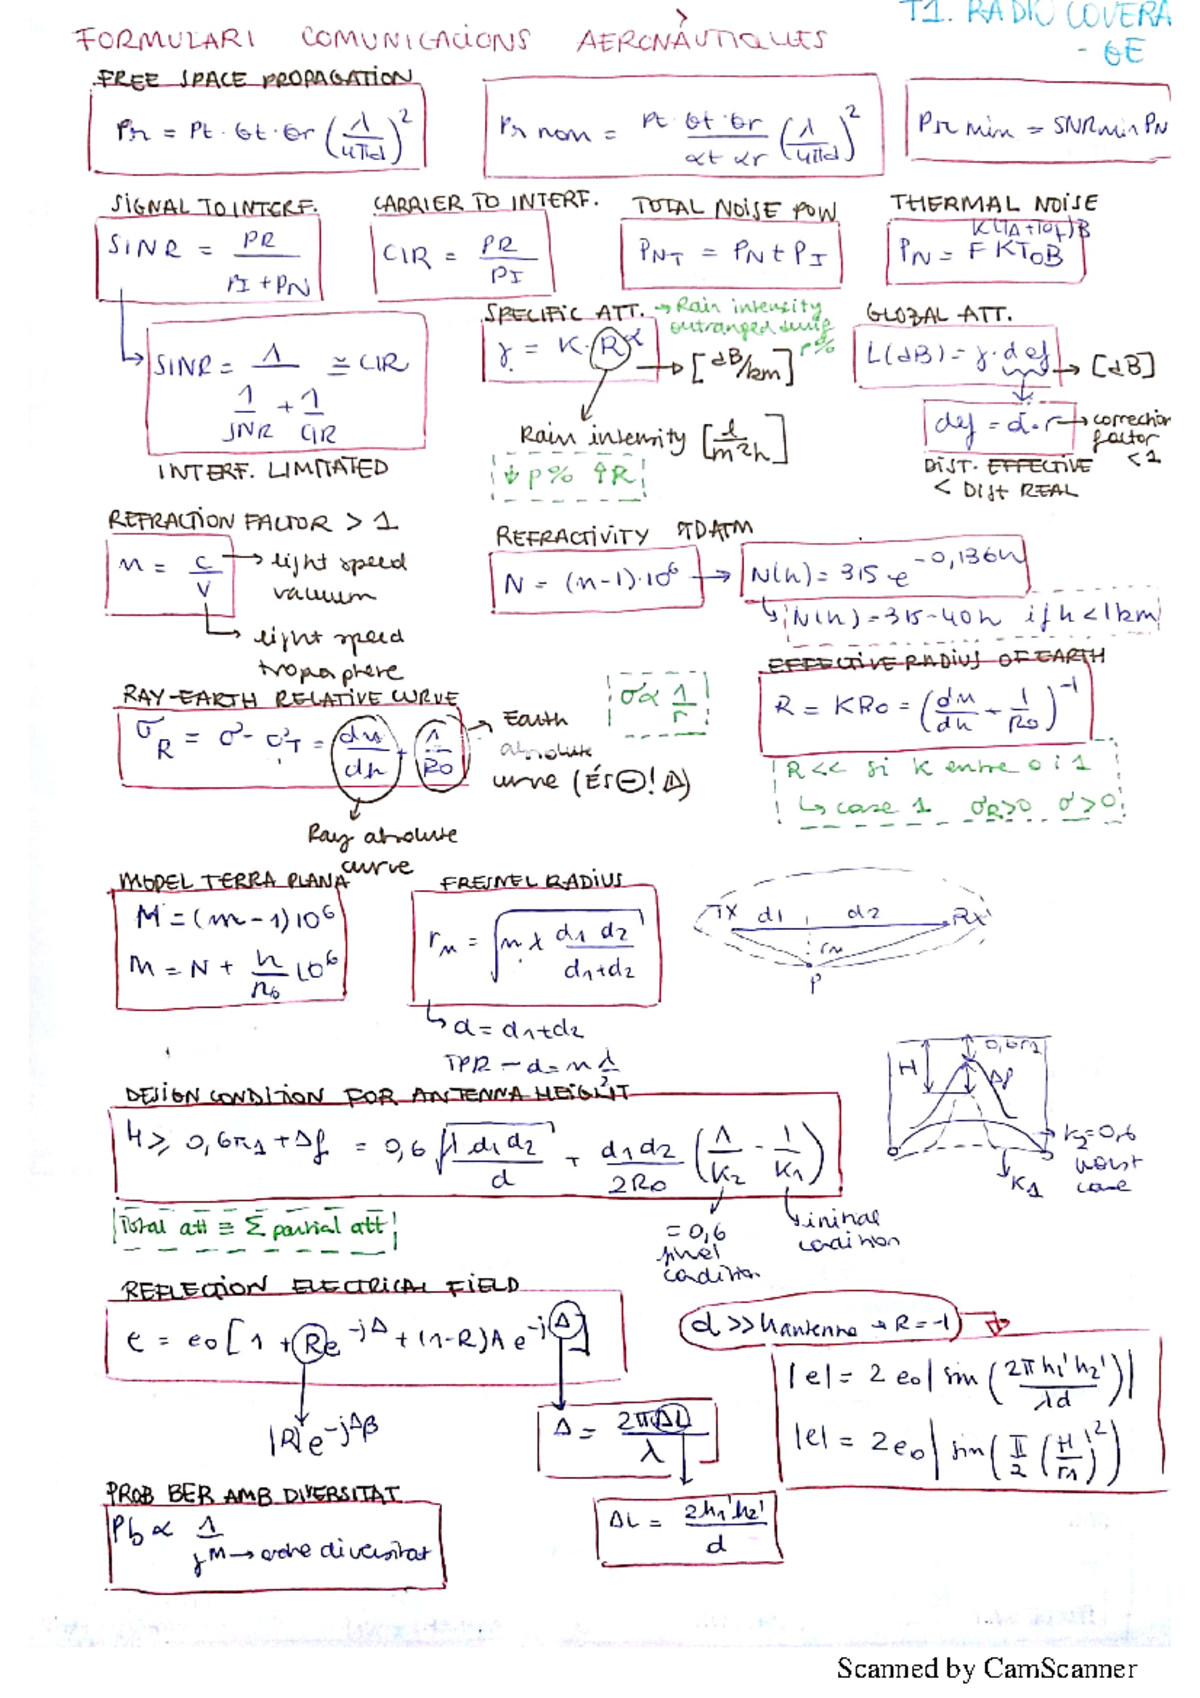 T1. RADIO COVERA
- GE
FORMULARI COMUNICACIONS AERONÀUTIQUES
FREE SPACE PROPAGATION
Pr = Pt · Gt · Gr (λ/4πd)²
Pr nom = Pt · Gt · Gr / αt αr (λ/4πd)²
Pr min = SNRmin PN
SIGNAL TO INTERF.
SINR = PR / PI + PN
CARRIER TO INTERF.
CIR = PR / PI
TOTAL NOISE POW
PNT = PN + PI
THERMAL NOISE
K(TA+T0f)B
PN = F K T0 B
SINR = 1 / (1/SNR + 1/CIR) ≅ CIR
INTERF. LIMITATED
SPECIFIC ATT. → Rain intensity
outranged during
r%
γ = K · R^α → [dB/km]
Rain intensity [l/m²h]
↓ p% ↑R
GLOBAL ATT.
L(dB) = γ · def → [dB]
def = d · r → correction
factor
< 1
DIST. EFFECTIVE
< DIST REAL
REFRACTION FACTOR > 1
n = c/v → light speed
vacuum
light speed
tropasphere
REFRACTIVITY TDATM
N = (n-1)·10⁶ → N(h) = 315 e^-0,136h
N(h) = 315 - 40h if h < 1km
RAY-EARTH RELATIVE CURVE
σR = σ - σT = dn/dh + 1/R0 → Earth
absolute
curve (ÉS ⊖! ⚠)
Ray absolute
curve
σ ∝ 1/r
EFFECTIVE RADIUS OF EARTH
R = KR0 = (dn/dh + 1/R0)^-1
R << si K entre 0 i 1
↳ case 1 σR>0 σ>0
MODEL TERRA PLANA
M = (m-1)10⁶
M = N + h/R0 10⁶
FRESNEL RADIUS
rn = √(n λ d1 d2 / d1+d2)
↳ d = d1+d2
TPR - d = n λ/2
TX d1 d2 RX
rn
P
DESIGN CONDITION FOR ANTENNA HEIGHT
H ≥ 0,6r1 + Δf = 0,6 √(λ d1 d2 / d) + d1 d2 / 2R0 (1/K2 - 1/K1)
= 0,6
final
condition
initial
condition
H
0,6r1
Δf
K2=0,6
worst
case
K1
Total att ≡ Σ partial att
REFLECTION ELECTRICAL FIELD
e = e0 [1 + Re^-jΔ + (1-R)A e^-jΔ]
|R|e^-jΔβ
Δ = 2πΔL / λ
ΔL = 2h1'h2' / d
d >> hantenna → R = -1
|e| = 2 e0 | sin (2π h1' h2' / λd)|
|e| = 2 e0 | sin (π/2 (H'/r1)²)
PROB BER AMB DIVERSITAT
Pb ∝ 1 / γ^M → ordre diversitat
Scanned by CamScanner